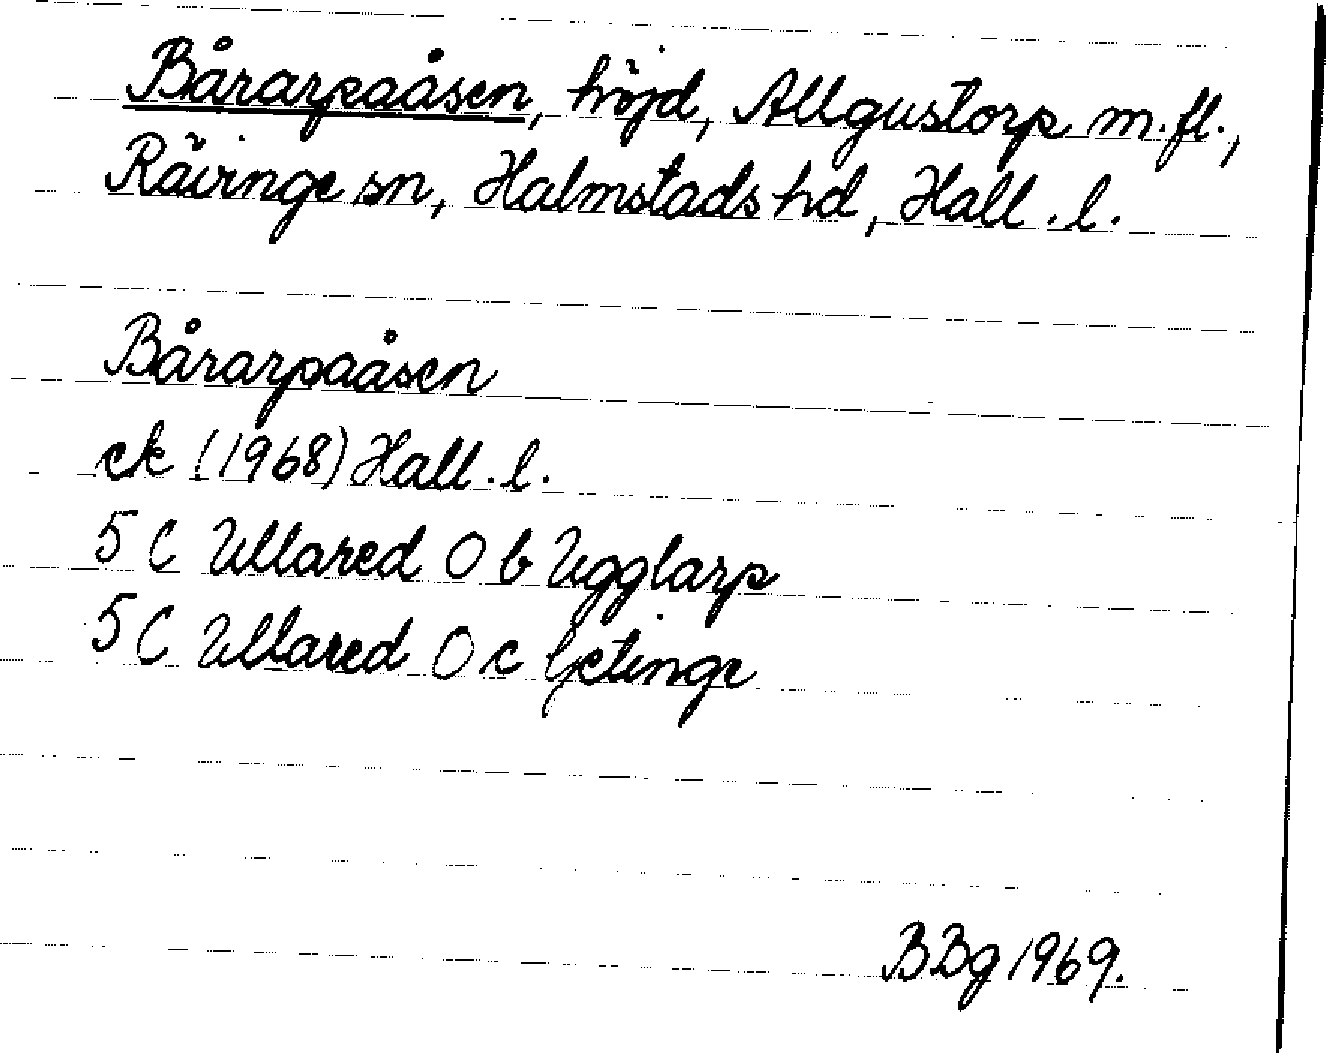 Bårarpaåsen, höjd, Allgustorp m.fl.,
Rävinge sn, Halmstads hd, Hall.l.
Bårarpaåsen
ek (1968) Hall.l.
5 C Ullared O b Ugglarp
5 C Ullared O c Getinge
BBg 1969.